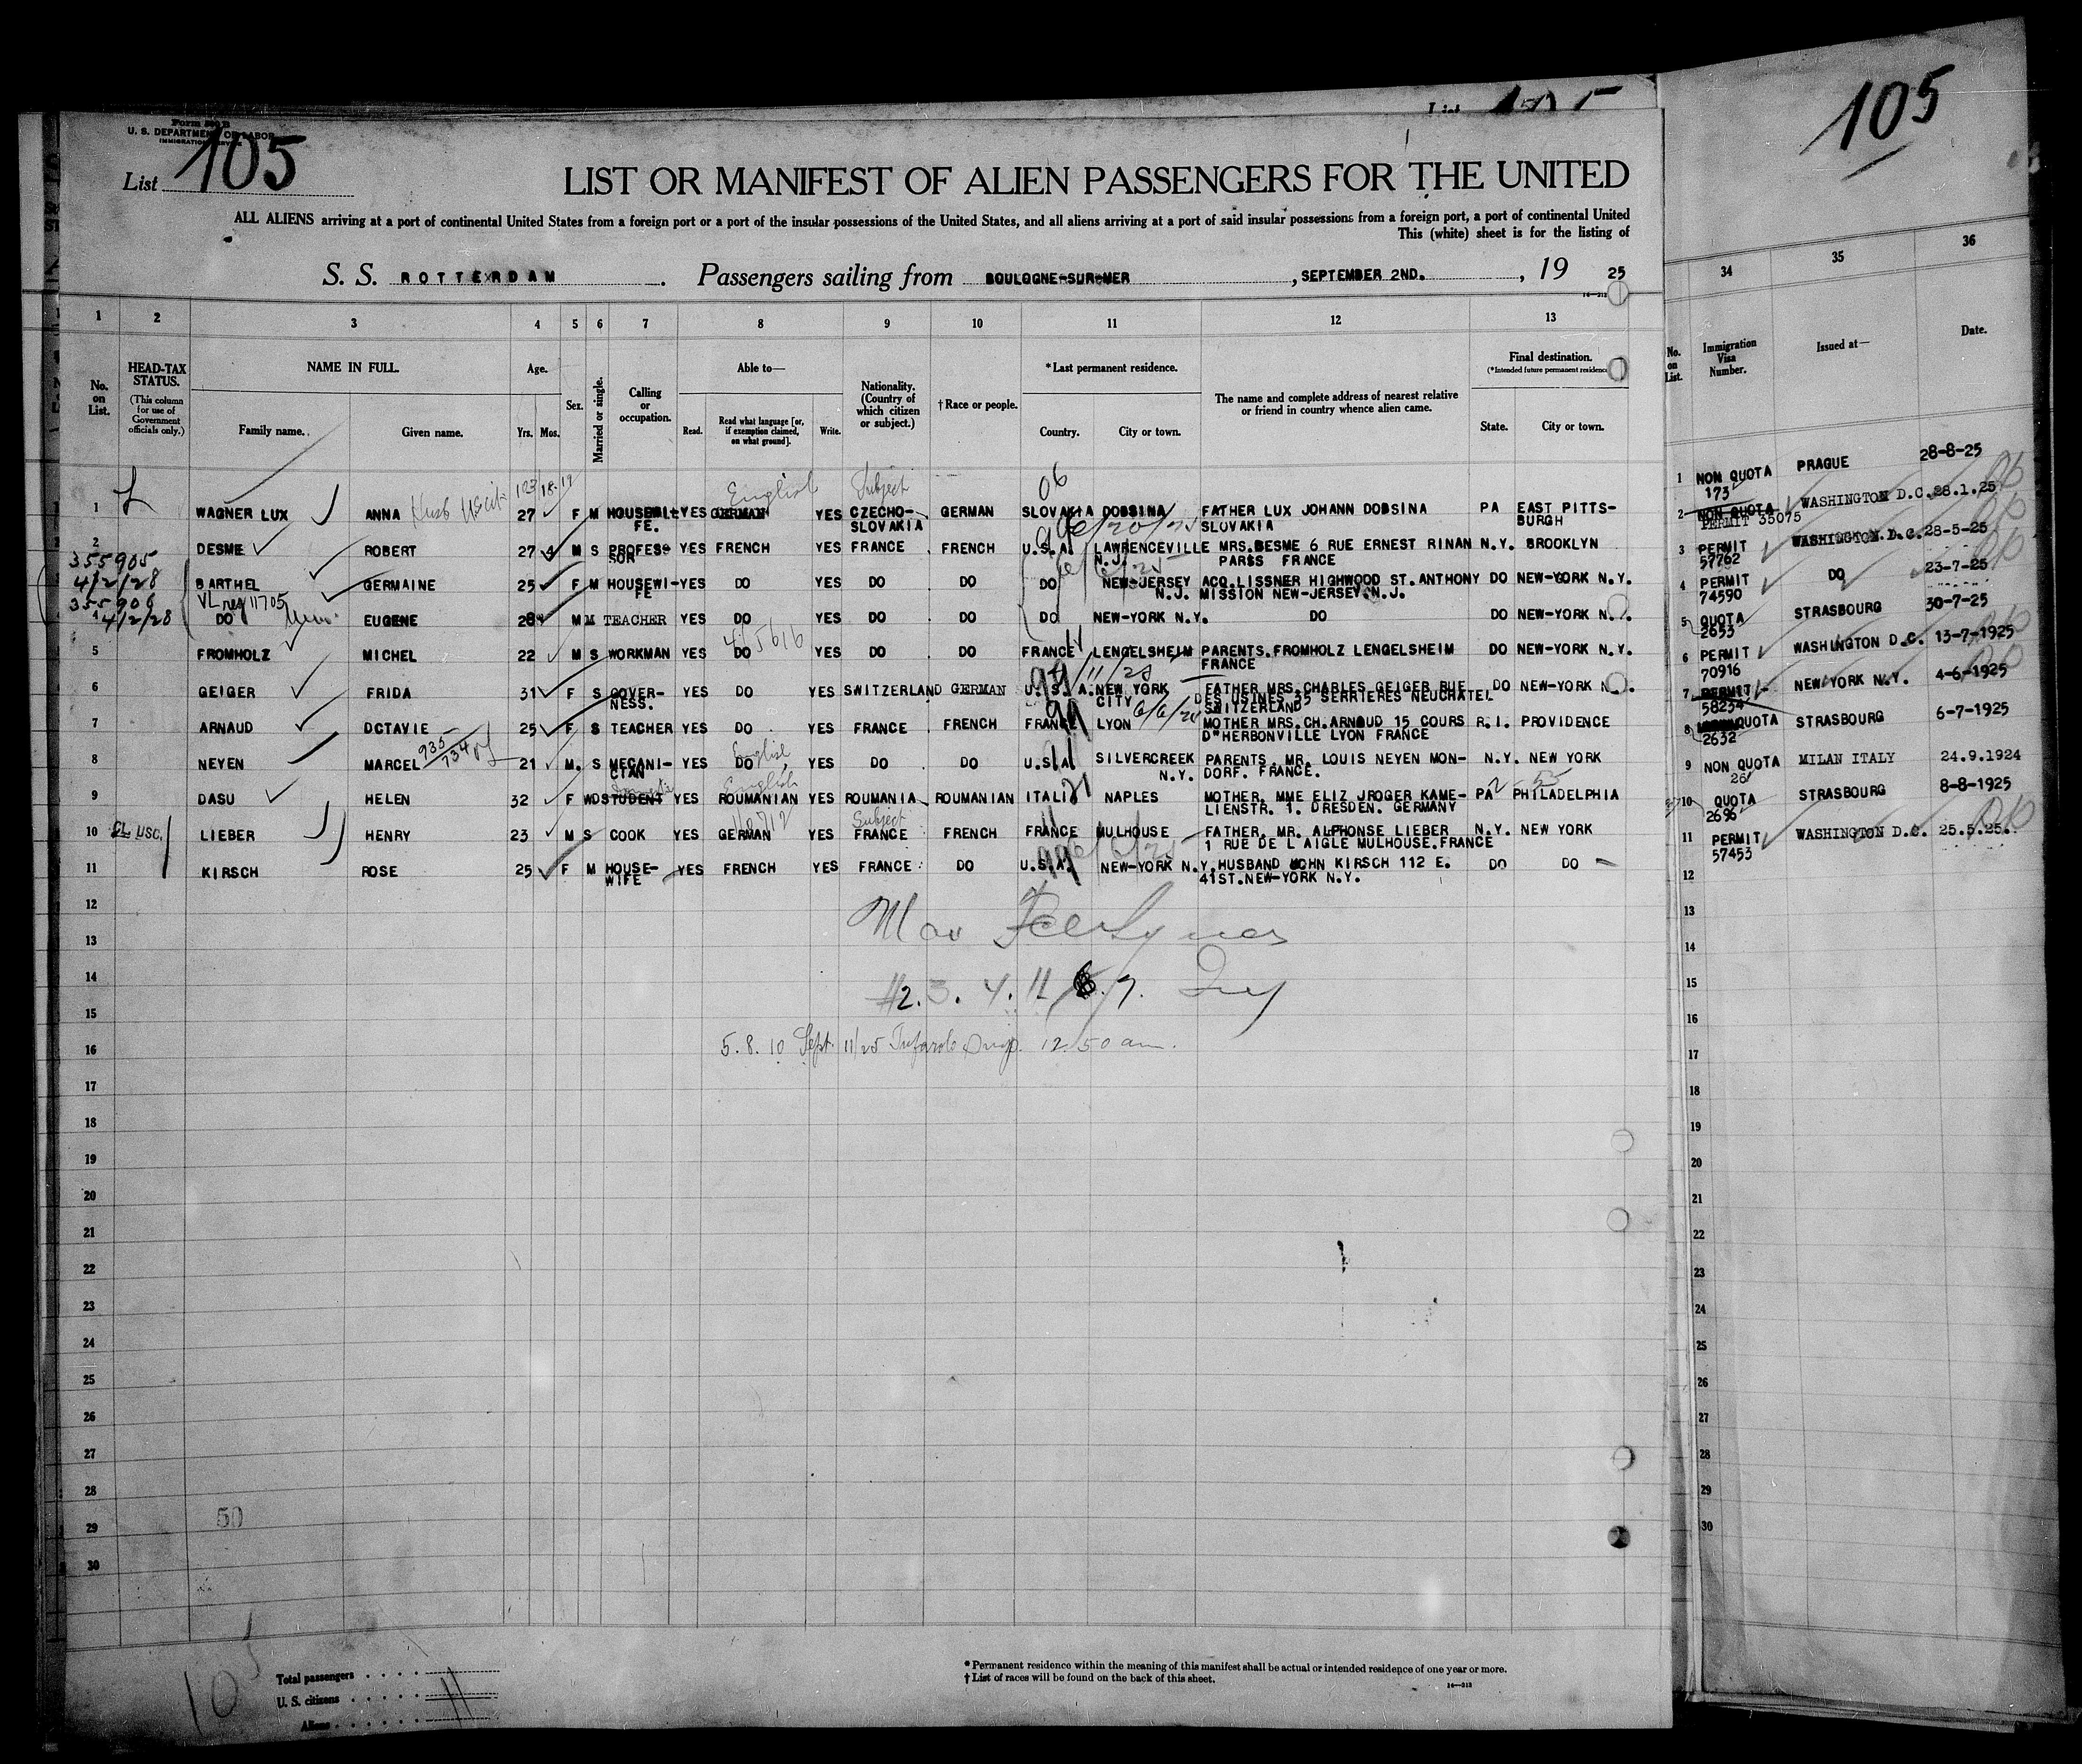 105
List 105
Form 500 B
U. S. DEPARTMENT OF LABOR
IMMIGRATION SERVICE
LIST OR MANIFEST OF ALIEN PASSENGERS FOR THE UNITED
ALL ALIENS arriving at a port of continental United States from a foreign port or a port of the insular possessions of the United States, and all aliens arriving at a port of said insular possessions from a foreign port, a port of continental United
This (white) sheet is for the listing of
S. S. ROTTERDAM. Passengers sailing from BOULOGNE-SUR-MER, SEPTEMBER 2ND., 19 25
1 2 3 4 5 6 7 8 9 10 11 12 13
No. on List.
HEAD-TAX STATUS.
(This column for use of Government officials only.)
NAME IN FULL.
Family name. Given name.
Age.
Yrs. Mos.
Sex.
Married or single.
Calling or occupation.
Able to—
Read. Read what language [or, if exemption claimed, on what ground]. Write.
Nationality. (Country of which citizen or subject.)
†Race or people.
*Last permanent residence.
Country. City or town.
The name and complete address of nearest relative or friend in country whence alien came.
Final destination.
(*Intended future permanent residence
State. City or town.
English Subject 06
1 WAGNER LUX ANNA 27 F M YES GERMAN YES CZECHO- GERMAN SLOVAKIA DOBSINA FATHER LUX JOHANN DOBSINA PA EAST PITTS-
FE. SLOVAKIA SLOVAKIA BURGH
2 DESME ROBERT 27 4 M S PROFES- YES FRENCH YES FRANCE FRENCH U.S.A. LAWRENCEVILLE MRS.DESME 6 RUE ERNEST RINAN N.Y. BROOKLYN
SOR N.J. FRANCE
355905
4/2/28 BARTHEL GERMAINE 25 F M HOUSEWI- YES DO YES DO DO DO NEW-JERSEY ACQ.LISSNER HIGHWOOD ST.ANTHONY DO NEW-YORK N.Y.
FE N.J. MISSION NEW-JERSEY.N.J.
4/2/28 DO EUGENE 28 M M TEACHER YES DO YES DO DO DO NEW-YORK N.Y. DO DO NEW-YORK N.Y.
5 FROMHOLZ MICHEL 22 M S WORKMAN YES DO YES DO DO FRANCE LENGELSHEIM PARENTS.FROMHOLZ LENGELSHEIM DO NEW-YORK N.Y.
FRANCE
6 GEIGER FRIDA 31 F S GOVER- YES DO YES SWITZERLAND GERMAN U.S.A. NEW YORK FATHER MRS.CHARLES GEIGER RUE DO NEW-YORK N.Y.
NESS. CITY DES USINES 35 SERRIERES NEUCHATEL
SWITZERLAND
7 ARNAUD OCTAVIE 25 F S TEACHER YES DO YES FRANCE FRENCH FRANCE LYON MOTHER MRS.CH.ARNAUD 15 COURS R.I. PROVIDENCE
D"HERBONVILLE LYON FRANCE
8 NEYEN MARCEL 21 M. S MECANI- YES DO YES DO DO U.S.A SILVERCREEK PARENTS. MR. LOUIS NEYEN MON- N.Y. NEW YORK
CIAN N.Y. DORF. FRANCE.
English
9 DASU HELEN 32 F WD STUDENT YES ROUMANIAN YES ROUMANIA ROUMANIAN ITALI NAPLES MOTHER. MME ELIZ JROGER KAME- PA PHILADELPHIA
LIENSTR. 1. DRESDEN. GERMANY
Subject
10 LIEBER HENRY 23 M S COOK YES GERMAN YES FRANCE FRENCH FRANCE MULHOUSE FATHER. MR. ALPHONSE LIEBER N.Y. NEW YORK
1 RUE DE L'AIGLE MULHOUSE.FRANCE
11 KIRSCH ROSE 25 F M HOUSE- YES FRENCH YES FRANCE DO U.S.A. NEW-YORK N.Y. HUSBAND JOHN KIRSCH 112 E. DO DO
WIFE 41ST.NEW-YORK N.Y.
12
13
14
15
16
5.8.10 Sept. 11/25 12.50 am.
17
18
19
20
21
22
23
24
25
26
27
28
29
30
50
Total passengers
U. S. citizens
Aliens
11
*Permanent residence within the meaning of this manifest shall be actual or intended residence of one year or more.
†List of races will be found on the back of this sheet.
105
34 35 36
No. on List.
Immigration Visa Number.
Issued at—
Date.
1 NON QUOTA PRAGUE 28-8-25
173
2 NON QUOTA WASHINGTON D.C. 28.1.25
PERMIT 35075
3 PERMIT WASHINGTON D.C. 28-5-25
57762
4 PERMIT DO 23-7-25
74590
5 QUOTA STRASBOURG 30-7-25
2653
6 PERMIT WASHINGTON D.C. 13-7-1925
70916
7 PERMIT NEW YORK N.Y. 4-6-1925
58234
8 QUOTA STRASBOURG 6-7-1925
2632
9 NON QUOTA MILAN ITALY 24.9.1924
26
10 QUOTA STRASBOURG 8-8-1925
2696
11 PERMIT WASHINGTON D.C. 25.5.25.
57453
12
13
14
15
16
17
18
19
20
21
22
23
24
25
26
27
28
29
30